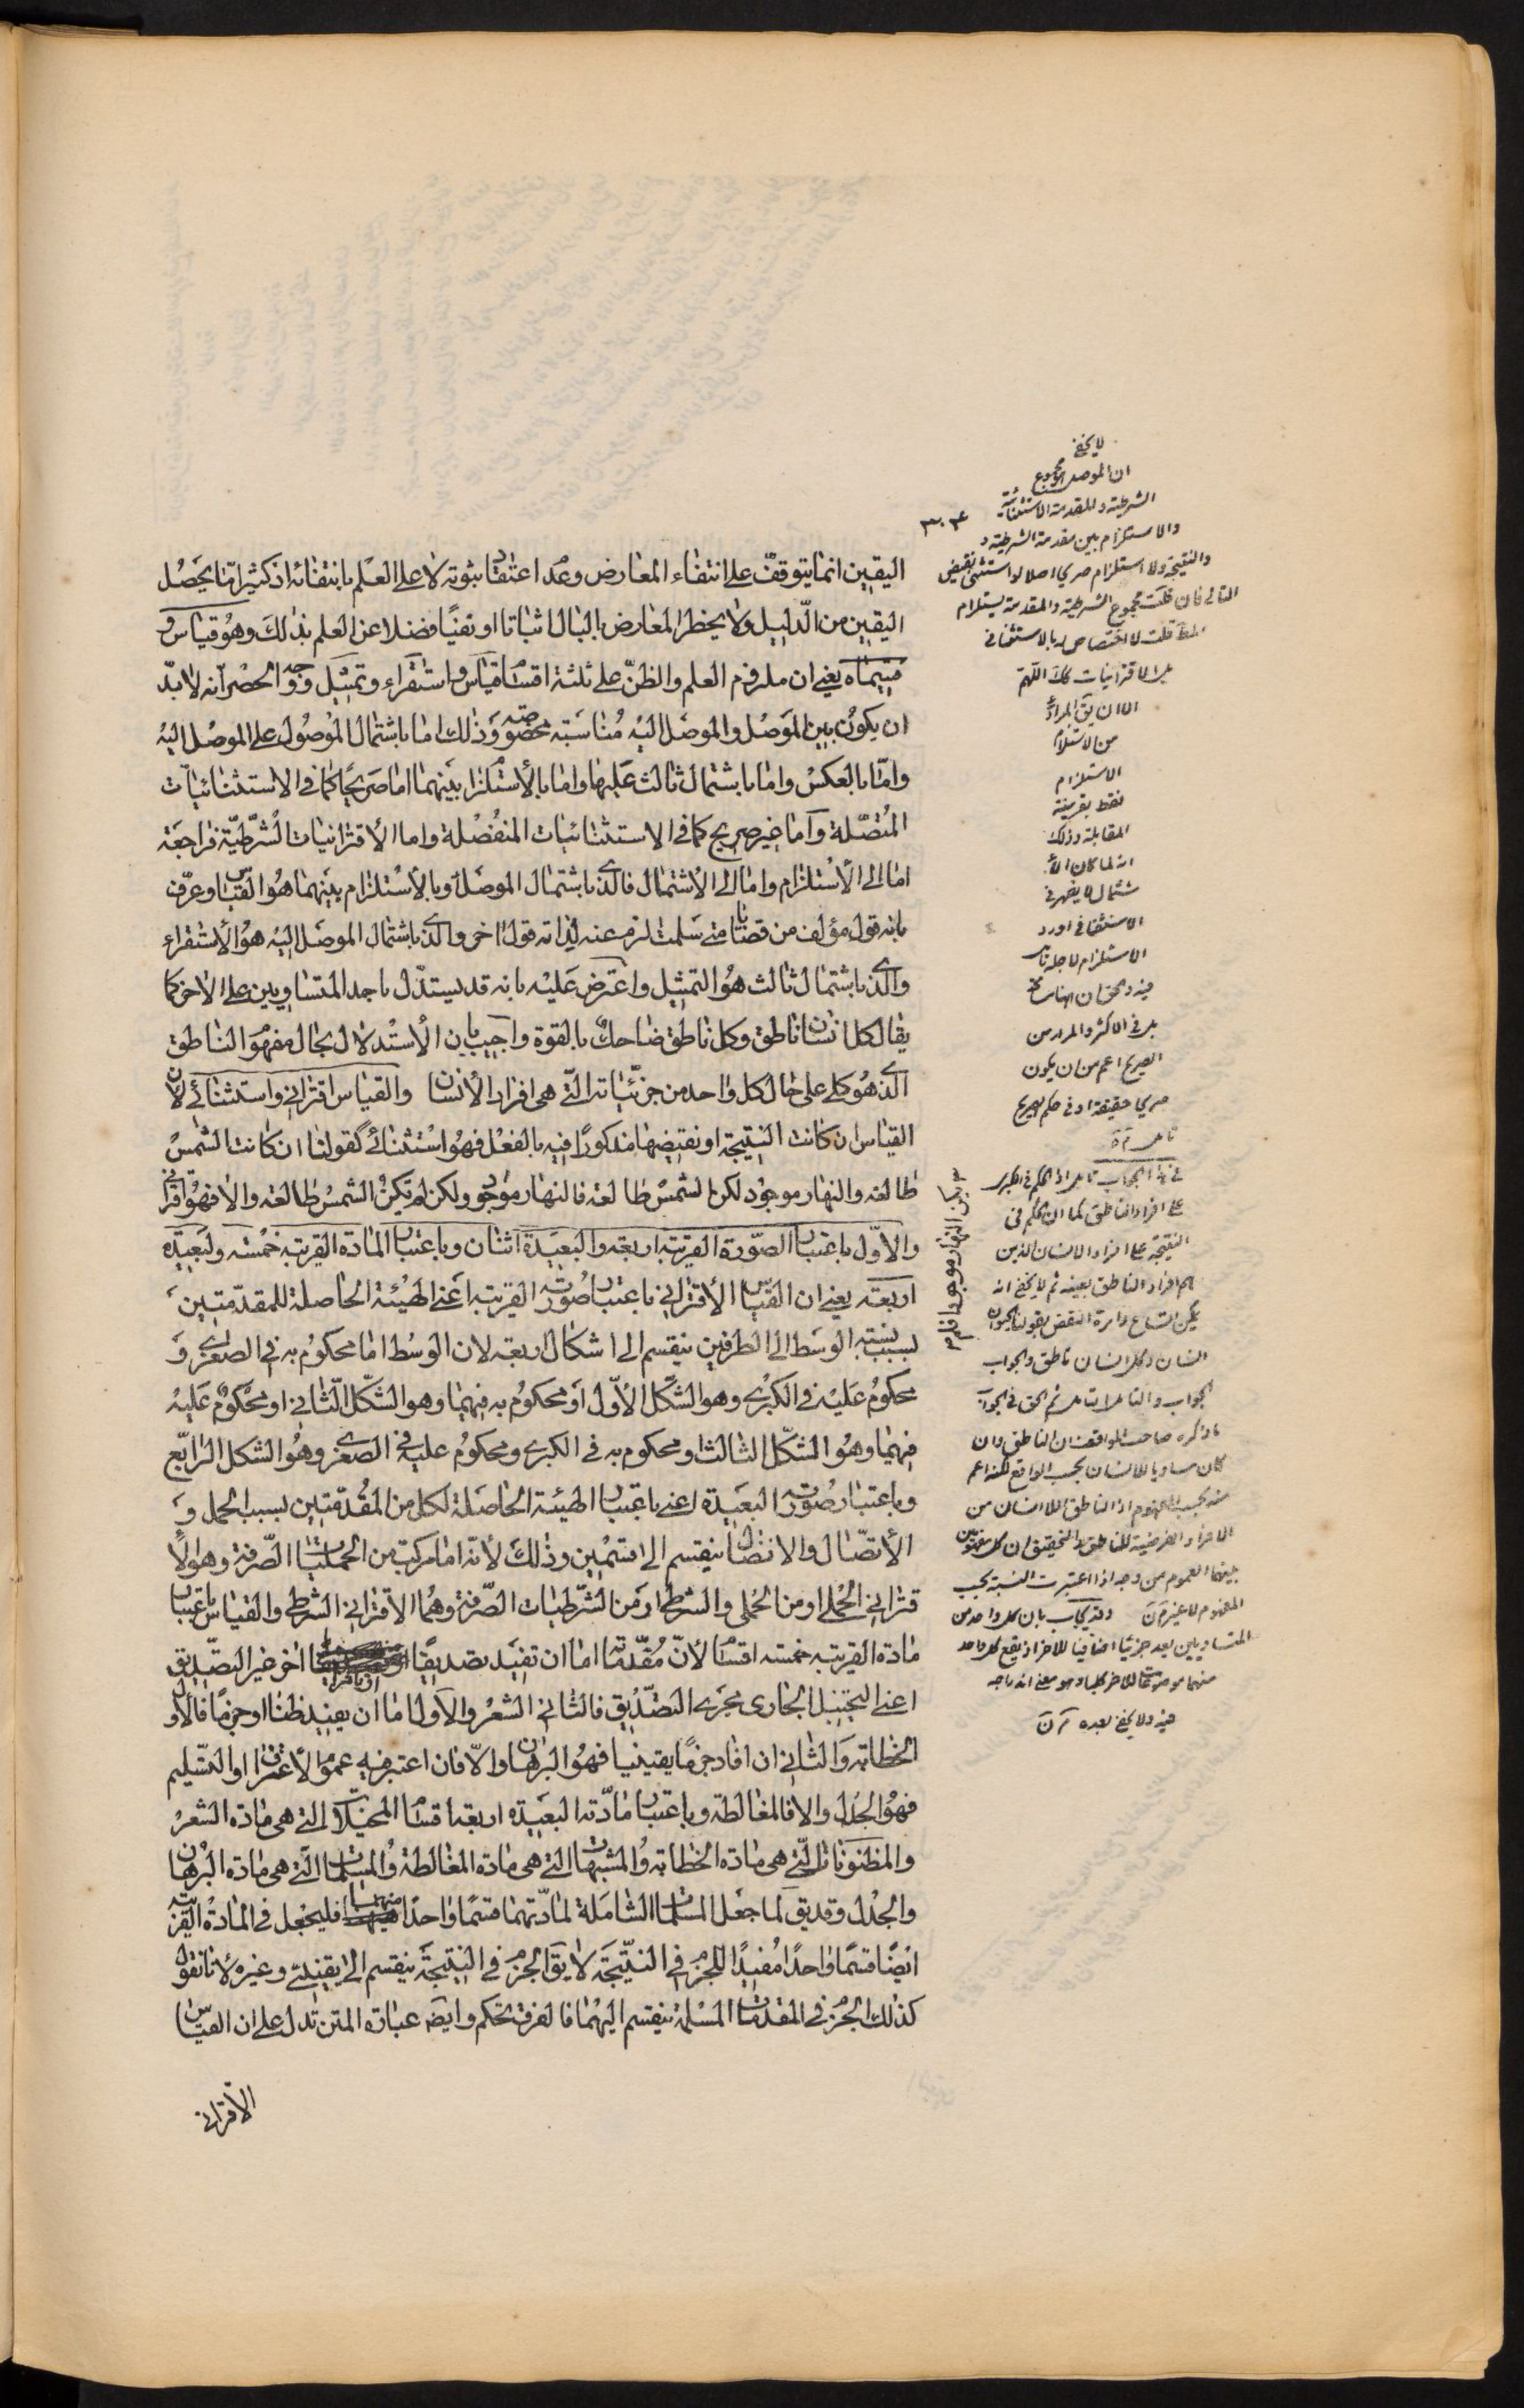 اليقين انما يتوقف على انتفاء المعارض وعدم اعتقاد ثبوته لا على العلم بانتفائه اذ كثيرا ما يحصل
اليقين من الدليل ولا يخطر المعارض بالبال اثباتا او نفيا فضلا عن العلم بذلك وهو قياس و
قسيماه يعني ان ملزوم العلم والظن على ثلثة اقسام قياس واستقراء وتمثيل ووجه الحصر انه لا بد
ان يكون بين الموصل والموصل اليه مناسبة مخصوصة وذلك اما باشتمال الموصول على الموصل اليه
واما بالعكس واما باشتمال ثالث عليها واما بالأستلزام بينهما اما صريحا كما في الاستثنائيات
المتصلة واما غير صريح كما في الاستثنائيات المنفصلة واما الأقترانيات الشرطية فراجعة
اما الى الأستلزام واما الى الأشتمال فالذي باشتمال الموصل او بالأستلزام بينهما هو القياس وعرف
بانه قول مؤلف من قضايا متى سلمت لزم عنه لذاته قول اخر والذي باشتمال الموصل اليه هو الأستقراء
والذي باشتمال ثالث هو التمثيل واعترض عليه بانه قد يستدل باحد المتساويين على الاخر كما
يقال كل انسان ناطق وكل ناطق ضاحك بالقوة واجيب بان الأستدلال بحال مفهوم الناطق
الذي هو كلي على حال كل واحد من جزئياته التي هي افراد الأنسان والقياس اقتراني واستثنائي لان
القياس ان كانت النتيجة او نقيضها مذكورا فيه بالفعل فهو استثنائي كقولنا ان كانت الشمس
طالعة والنهار موجود لكن الشمس طالعة فالنهار موجود ولكن لم تكن الشمس طالعة والا فهو اقتراني
والاول باعتبار الصورة القريبة اربعة والبعيدة اثنان وباعتبار المادة القريبة خمسة والبعيدة
اربعة يعني ان القياس الأقتراني باعتبار صورته القريبة اعني الهيئة الحاصلة للمقدمتين
بسبب نسبة الوسط الى الطرفين ينقسم الى اشكال اربعة لان الوسط اما محكوم به في الصغرى و
محكوم عليه في الكبرى وهو الشكل الأول او محكوم به فيهما وهو الشكل الثاني او محكوم عليه
فيهما وهو الشكل الثالث او محكوم به في الكبرى ومحكوم عليه في الصغرى وهو الشكل الرابع
وباعتبار صورته البعيدة اعني باعتبار الهيئة الحاصلة لكل من المقدمتين بسبب الحمل و
الأتصال والانفصال ينقسم الى قسمين وذلك لأنه اما مركب من الحمليات الصرفة وهو الأ
قتراني الحملي او من الحملي والشرطي او من الشرطيات الصرفة وهما الاقتراني الشرطي والقياس باعتبار
مادة القريبة خمسة اقسام لأن مقدماته اما ان تفيد تصديقا او تاثيرا اخر غير التصديق
اعني التخييل الجارى مجرى التصديق فالثاني الشعر والأول اما ان يفيد ظنا او جزما فالأول
الخطابة والثاني ان افاد جزما يقينيا فهو البرهان والا فان اعتبر فيه عموم الأعتراف او التسليم
فهو الجدل والا فالمغالطة وباعتبار مادته البعيدة اربعة اقسام المخيلات التي هي مادة الشعر
والمظنونات التي هي مادة الخطابة والمشبهات التي هي مادة المغالطة والمسلمات التي هي مادة البرهان
والجدل وقد يق لما جعل المسلمات الشاملة لمادتهما قسما واحدا منهما فليجعل في المادة القريبة
ايضا قسما واحدا مفيدا للجزم في النتيجة لا يق الجزم في النتيجة ينقسم الى يقيني وغيره لأنا نقول
كذلك الجزم في المقدمات المسلمة ينقسم اليهما فالفرق تحكم وايضا عبارة المتن تدل على ان القياس
الأقتراني
لا يخفى
ان الموصل مجموع
الشرطية والمقدمة الاستثنائية
والاستلزام بين مقدمة الشرطية و
والنتيجة ولا استلزام صريح اصلا لو استثنى نقيض
التالي فان قلت مجموع الشرطية والمقدمة يستلزم
قلت لا اختصاص له بالاستثنائي
بل الاقترانيات كك اللهم
الا ان يق المراد
من الاستلزام
الاستلزام
فقط بقرينة
المقابلة وذلك
انه لما كان الا
شتمال لا يظهر في
الاستثنائي اورد
الاستلزام لاجله
بل في الاكثر والمراد من
الصريح اعم من ان يكون
صريح حقيقة او في حكم الصريح
في هذا الجواب تامل اذ الحكم في الكبرى
على افراد الناطق كما ان الحكم في
النتيجة على افراد الانسان الذين
هم افراد الناطق بعينه ثم لا يخفى انه
يمكن اتساع دائرة النقض بقولنا كل حيوان
انسان وكل انسان ناطق والجواب
الجواب والتامل التامل ثم الحق في الجواب
ما ذكره صاحب المواقف ان الناطق وان
كان مساويا للانسان بحسب الواقع لكنه اعم
منه بحسب المفهوم اذ الناطق اللا انسان من
الافراد الفرضية للناطق والتحقيق ان كل مفهومين
بينهما العموم من وجه اذا اعتبرت النسبة بحسب
المفهوم لا غير وقد يجاب بان كل واحد من
المتساويين يعد جزئيا اضافيا للاخر اذ يقع كل واحد
منهما موضوعا للاخر كليا وهو معنى اندراجه
فيه ولا يخفى بعده